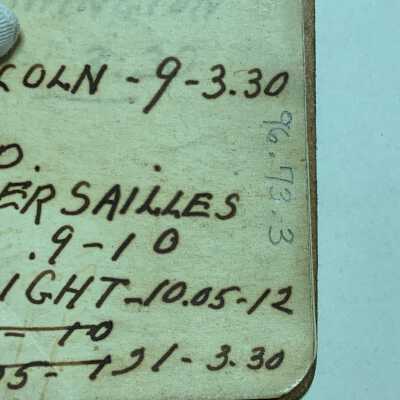 COLN - 9 - 3.30
O.
ERSAILLES
.9 - 10
IGHT - 10.05 - 12
- 10
05 - 1 31 - 3.30
96.73.3